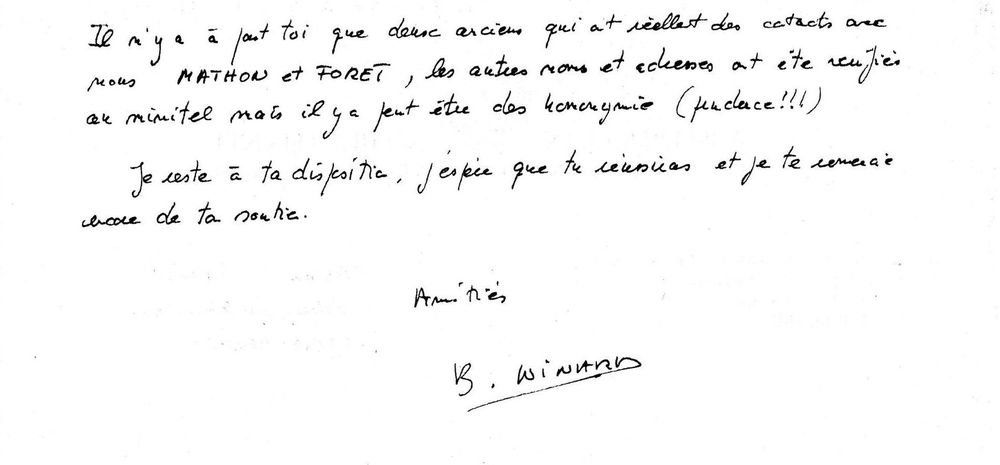 Il n'y a à part toi que deux anciens qui ont réellement des contacts avec
nous MATHON et FORET, les autres noms et adresses ont été vérifiés
au minitel mais il y a peut être des homonymie (prudence!!!)
Je reste à ta disposition, j'espère que tu réussiras et je te remercie
encore de ton soutien.
Amitiés
B. WINARD